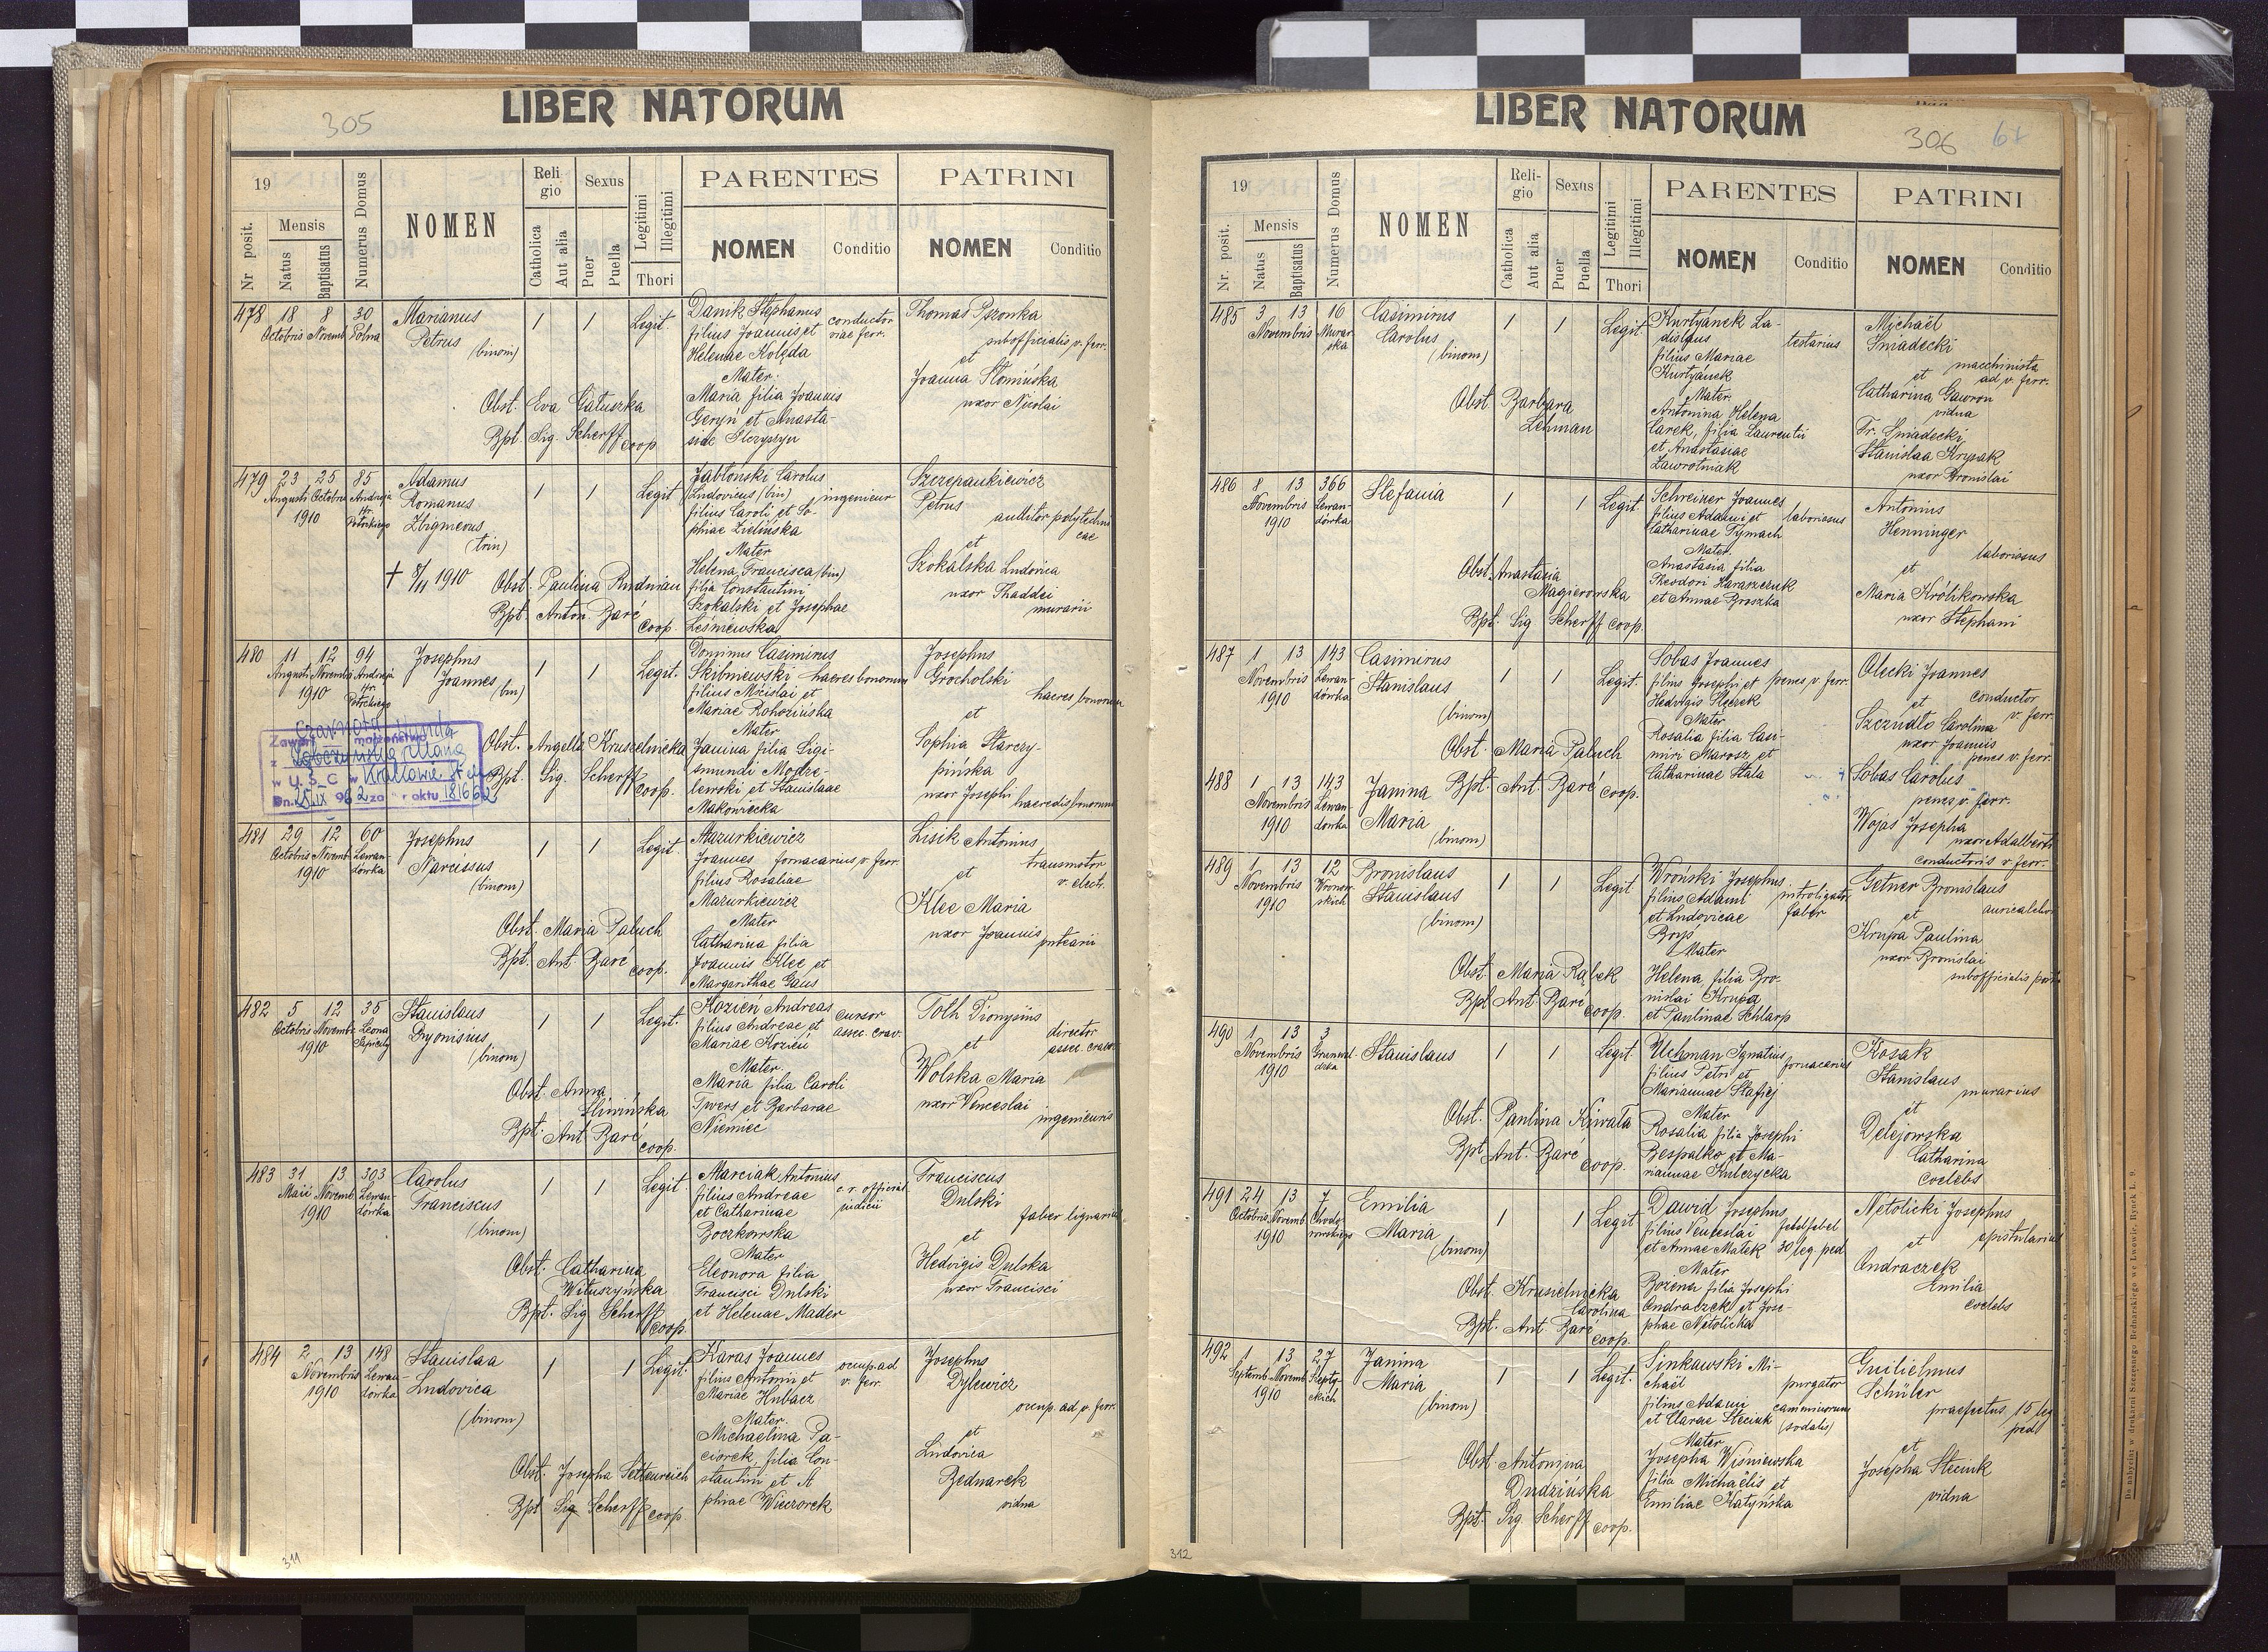 LIBER NATORUM
305
19
Nr. posit.
Mensis
Natus
Baptisatus
Numerus Domus
NOMEN
Religio
Catholica
Aut alia
Sexus
Puer
Puella
Legitimi
Illegitimi
Thori
PARENTES
NOMEN
Conditio
PATRINI
NOMEN
Conditio
478 18 8 30
Octobris Novemb Polna
Marianus
Petrus
(binom)
1 1 Legit.
Danik Stephanus
filius Joannis et
Helenae Kolęda
conductor
viae ferr.
Mater:
Maria filia Joannis
Geryń et Anasta-
siae
Thomas Pszonka
subofficialis v. ferr.
et
Joanna Słomińska
uxor Nicolai
Obst. Eva Gałuszka
Bpt. Sig. Scherff coop
479 23 25 85
Augusti Octobris Andreja
hr.
Potockiego
1910
Adamus
Romanus
Zbigneous
(trin)
† 8/11 1910
1 1 Legit
Jabłoński Carolus
Ludovicus (bin)
ingenieur
filius Caroli et So-
phiae Zielińska
Mater
Helena Francisca (bin)
filia Constantini
Szokalski et Josephae
Leśniewska
Szczepankiewicz
Petrus
auditor polytechni
cae
et
Szokalska Ludovica
uxor Thaddei
murarii
Obst. Paulina Rudnian
Bpt. Anton. Baré coop.
480 11 12 94
Augusti Novembr Andreja
hr.
Potockiego
1910
Josephus
Joannes (bin)
1 1 Legit.
Dominus Casimirus
Skibniewski haeres bonorum
filius Mścislai et
Mariae Rohozińska
Mater
Janina filia Sigi-
smundi Modze-
lewski et Stanislaae
Makowiecka
Josephus
Grocholski
haeres bonorum
et
Sophia Starzy-
pińska
uxor Josephi haeredis bonorum
Obst. Angella Kruszelnicka
Bpt. Sig. Scherff coop.
Zawarł małżeństwo
z
w U.S.C. w Krakowie
481 29 12 60
Octobris Novemb Lewan-
dówka
1910
Josephus
Narcissus
(binom)
1 1 Legit.
Mazurkiewicz
Joannes fornacarius v. ferr.
filius Rosaliae
Mazurkiewicz
Mater
Catharina filia
Joannis Klee et
Margarithae Gaus
Lisik Antonius
transmotor
v. electr.
et
Klee Maria
uxor Joannis putearii
Obst. Maria Paluch
Bpt. Ant. Baré coop.
482 5 12 35
Octobris Novembr Leona
Sapiehy
1910
Stanislaus
Dyonisius
(binom)
1 1 Legit.
Kozień Andreas
filius Andreae et
Mariae Kozień
cursor
assec. crac.
Mater
Maria filia Caroli
Twers et Barbarae
Niemiec
Toth Dionysius
director
assec. cracov
et
Wolska Maria
uxor Venceslai
ingenieuris
Obst. Anna
Śliwińska
Bpt. Ant Baré coop.
483 31 13 303
Maii Novemb. Lewan-
dówka
1910
Carolus
Franciscus
(binom)
1 1 Legit
Marciak Antonius
filius Andreae
et Catharinae
Boczkowska
c. r. official.
iudicii
Mater
Eleonora filia
Francisci Dulski
et Helenae Mader
Franciscus
Dulski
faber lignarius
et
Hedvigis Dulska
uxor Francisci
Obst. Catharina
Wituszyńska
Bpt. Sig Scherff coop.
484 2 13 148
Novembris Lewan-
dówka
1910
Stanislaa
Ludovica
(binom)
1 1 Legit.
Karas Joannes
filius Antonii et
Mariae Hubacz
occup. ad
v. ferr.
Mater.
Michaelina Pa-
ciorek filia Con-
stantini et A
phiae Wieczorek
Josephus
Dylewicz
occup. ad v. ferr.
et
Ludovica
Bednarek
vidua
Obst. Josepha Settenreich
Bpt Sig Scherff coop
311
LIBER NATORUM
306 61
19
Nr. posit.
Mensis
Natus
Baptisatus
Numerus Domus
NOMEN
Religio
Catholica
Aut alia
Sexus
Puer
Puella
Legitimi
Illegitimi
Thori
PARENTES
NOMEN
Conditio
PATRINI
NOMEN
Conditio
485 3 13 16
Novembris Murar
ska
Casimirus
Carolus
(binom)
1 1 Legit
Kurtyánek La-
dislaus testarius
filius Mariae
Kurtyánek
Mater
Antonina Helena
Carek, filia Laurentii
et Anastasiae
Lawrótniak
Michaël
Śniadecki
macchinista
ad v. ferr.
et
Catharina Gawron
vidua
Fr. Śniadecki
Stanislaa Krysak
uxor Bronislai
Obst. Barbara
Lehman
486 8 13 366
Novembris Lewan-
dówka
1910
Stefania
1 1 Legit
Schreiner Joannes
filius Adami et laboriosus
Catharinae Tymach
Mater
Anastasia filia
Theodori Haraszczuk
et Annae Broszka
Antonius
Henninger
laboriosus
et
Maria Królikowska
uxor Stephani
Obst. Anastasia
Magierowska
Bpt. Sig Scherff coop.
487 1 13 143
Novembris Lewan-
dówka
1910
Casimirus
Stanislaus
(binom)
1 1 Legit.
Sobas Joannes
filius Josephi et penes v. ferr.
Hedvigis
Mater
Rosalia filia Casi-
miri Marosz et
Catharinae Stala
Olecki Joannes
et conductor
v. ferr.
Szczudło Carolina
uxor Joannis
penes v. ferr.
Obst. Maria Paluch
Bpt. Ant. Baré coop.
488 1 13 143
Novembris Lewan-
dowka
1910
Janina
Maria
(binom)
Sobas Carolus
penes v. ferr.
Wojas Josepha
uxor Adalberti
conductoris v. ferr.
489 1 13 12
Novembris Wronow-
skich
1910
Bronislaus
Stanislaus
(binom)
1 1 Legit
Wroński Josephus
filius Adami introligator
et Ludovicae faber
Boryś
Mater
Helena filia Bro-
nislai Krupa
et Paulinae Schlarp
Getner Bronislaus
et
Krupa Paulina
uxor Bronislai
subofficialis
Obst. Maria Rąbek
Bpt Ant. Baré coop.
490 1 13 3
Novembris Grunwal-
dzka
1910
Stanislaus
1 1 Legit.
Uchman Ignatius fornacarius
filius Petri et
Mariannae Stafiej
Mater
Rosalia filia Josephi
Bespalko et Ma-
riannae Kulczycka
Kosak
Stanislaus
murarius
et
Delejowska
Catharina
coelebs
Obst. Paulina Krzwała
Bpt Ant. Baré coop.
491 24 13 7
Octobris Novemb. Chodo-
rowskiego
1910
Emilia
Maria
(binom)
1 1 Legit
Dawid Josephus
filius Venceslai
et Annae Matek 30 leg. ped
Mater
Božena filia Josephi
Ondraczek et Jose-
phae Netolicka
Netolicki Josephus
et epistularius
Ondraczek
Emilia
coelebs
Obst. Krusielnicka
Carolina
Bpt. Ant. Baré coop.
492 1 13 27
Septemb Novemb Szepty-
ckich
1910
Janina
Maria
(binom)
1 1 Legit.
Sinkawski Mi-
chaël purgator
filius Adami camminorum
et Clarae Steciuk (sodalis)
Mater
Josepha Wiśniewska
filia Michaëlis et
Emiliae Katyńska
Guilielmus
Schüler
praefectus 15 leg
ped
et
Josepha Steciuk
vidua
Obst. Antonina
Dudzińska
Bpt. Sig Scherff coop.
312
Do nabycia: w drukarni Szczęsnego Bednarskiego we Lwowie, Rynek L. 9.